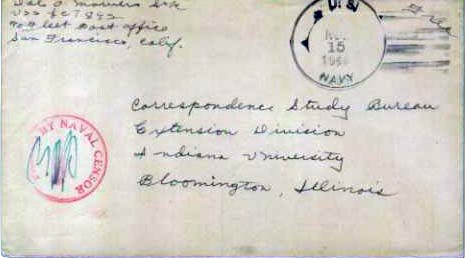 USS LCT 892
% Fleet Post Office
San Francisco, Calif.
U.S.
15
NAVY
BY NAVAL CENSOR
Correspondence Study Bureau
Extension Division
Indiana University
Bloomington, Illinois